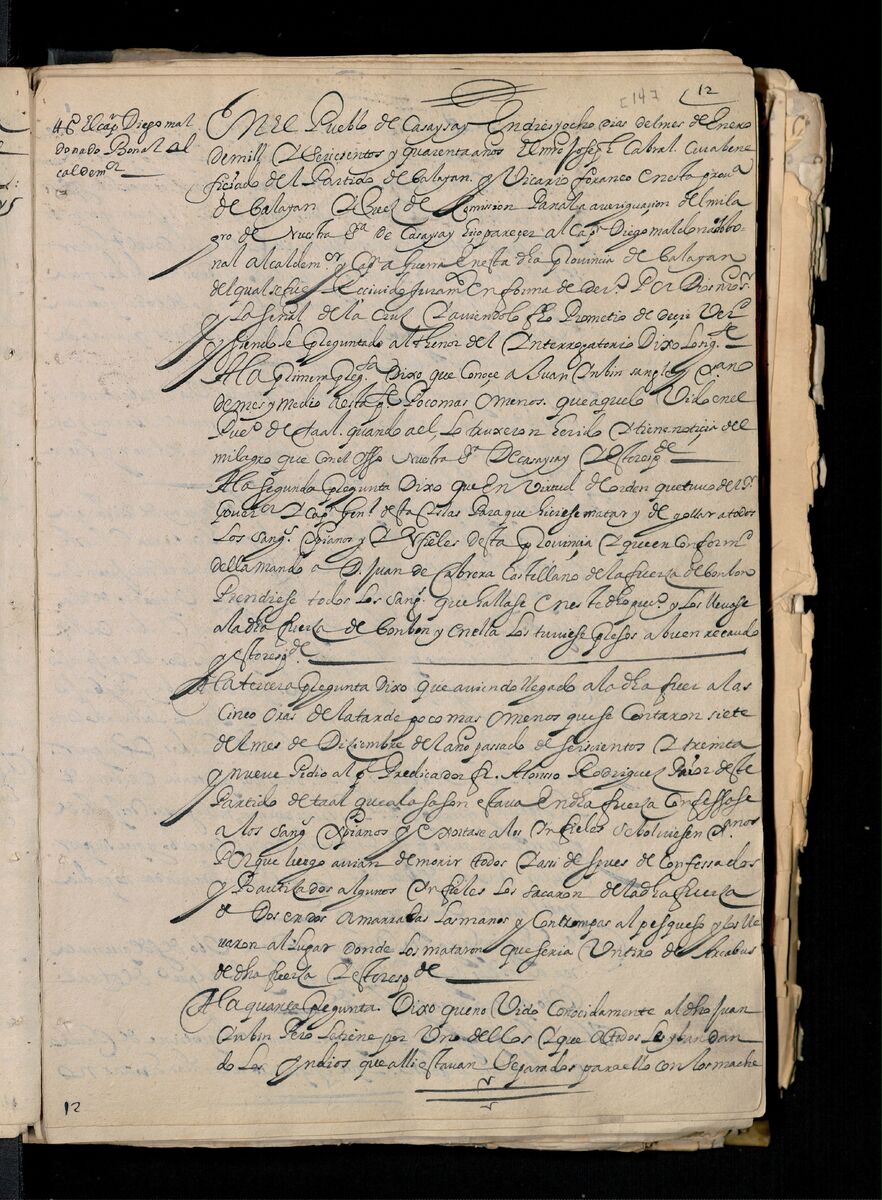 [147
12
4 t.º El capp.n Diego mal
donado Bonal al
calde m.r
En El Pueblo de Casaysay En dies y ocho dias del mes de Enero
de mill y Seiscientos y quarenta años El mro Joseph Cabral Cura bene
ficiado del Partido de balayan y Vicario foraneo en esta prou.a
de balayan y Juez de Comission Para la aueriguaçion del mila
gro de Nuestra S.ra De Casaysay hiço pareçer al Cap.n Diego maldonado bo-
nal alcalde m.or y Cap.n a Guerra En esta dha Prouincia de balayan
del qual se fue Reciuido juram.to en forma de der.o Por Dios nro S.r
y la señal de la Cruz y auiendolo fho Prometio de decir Ver.d
y siendole preguntado al thenor del Interrogatorio Dixo lo sig.te
A la primera preg.ta Dixo que Conoçe a Juan Inbin sangley Xpiano
de mes y Medio desta p.te Poco mas o menos. que aquelo Vido en el
Pue.o de taal quando a el lo truxeron herido y tiene notiçia del
milagro que Con el Hiso Nuestra S.ra De Casaysay y Esto resp.de
A la Segunda Pregunta Dixo que En Virtud de Orden que tuuo del S.r
gouer.or y Cap.n Gen.l destas Islas Para que hiciese matar y degollar a todos
los Sang.s Xpianos y Ynfieles desta Prouinçia y que en Conform.d
della mando a D. Juan de Cabrera Castellano de la fuersa de bonbon
Prendiese todos los Sang.s que hallase en este dho pue.o y los lleuase
a la dha fuersa de bonbon y en ella los tuuiese presos a buen recaudo
y esto resp.de
A la tercera pregunta Dixo que auiendo llegado a la dha fuersa a las
Cinco oras de la tarde poco mas o menos que se Contaron siete
del mes de Diciembre del año passado de seiscientos y treinta
y nueue Pidio al p.e Predicador fr. Alonso Rodriguez Prior deste
Partido de taal que a la sason estaua En dha fuersa Confessase
a los sang.s Xpianos y exortase a los Infieles se boluiesen Xpianos
Porque luego auian de morir todos y asi despues de Confessados
y Bautisados algunos Infieles los sacaron de la dha fuersa
de Dos en dos amarradas las manos y Con trompas al pesqueso y los lle
uaron al lugar donde los mataron que seria Un tiro de Arcabus
de dha fuersa y esto resp.de
A la quarta pregunta. Dixo que no Vido Conocidamente al dho Juan
Inbin Pero le tiene por Uno dellos y que a todos les yban dan
do los Yndios que alli estauan Separados para ello con los mache
12